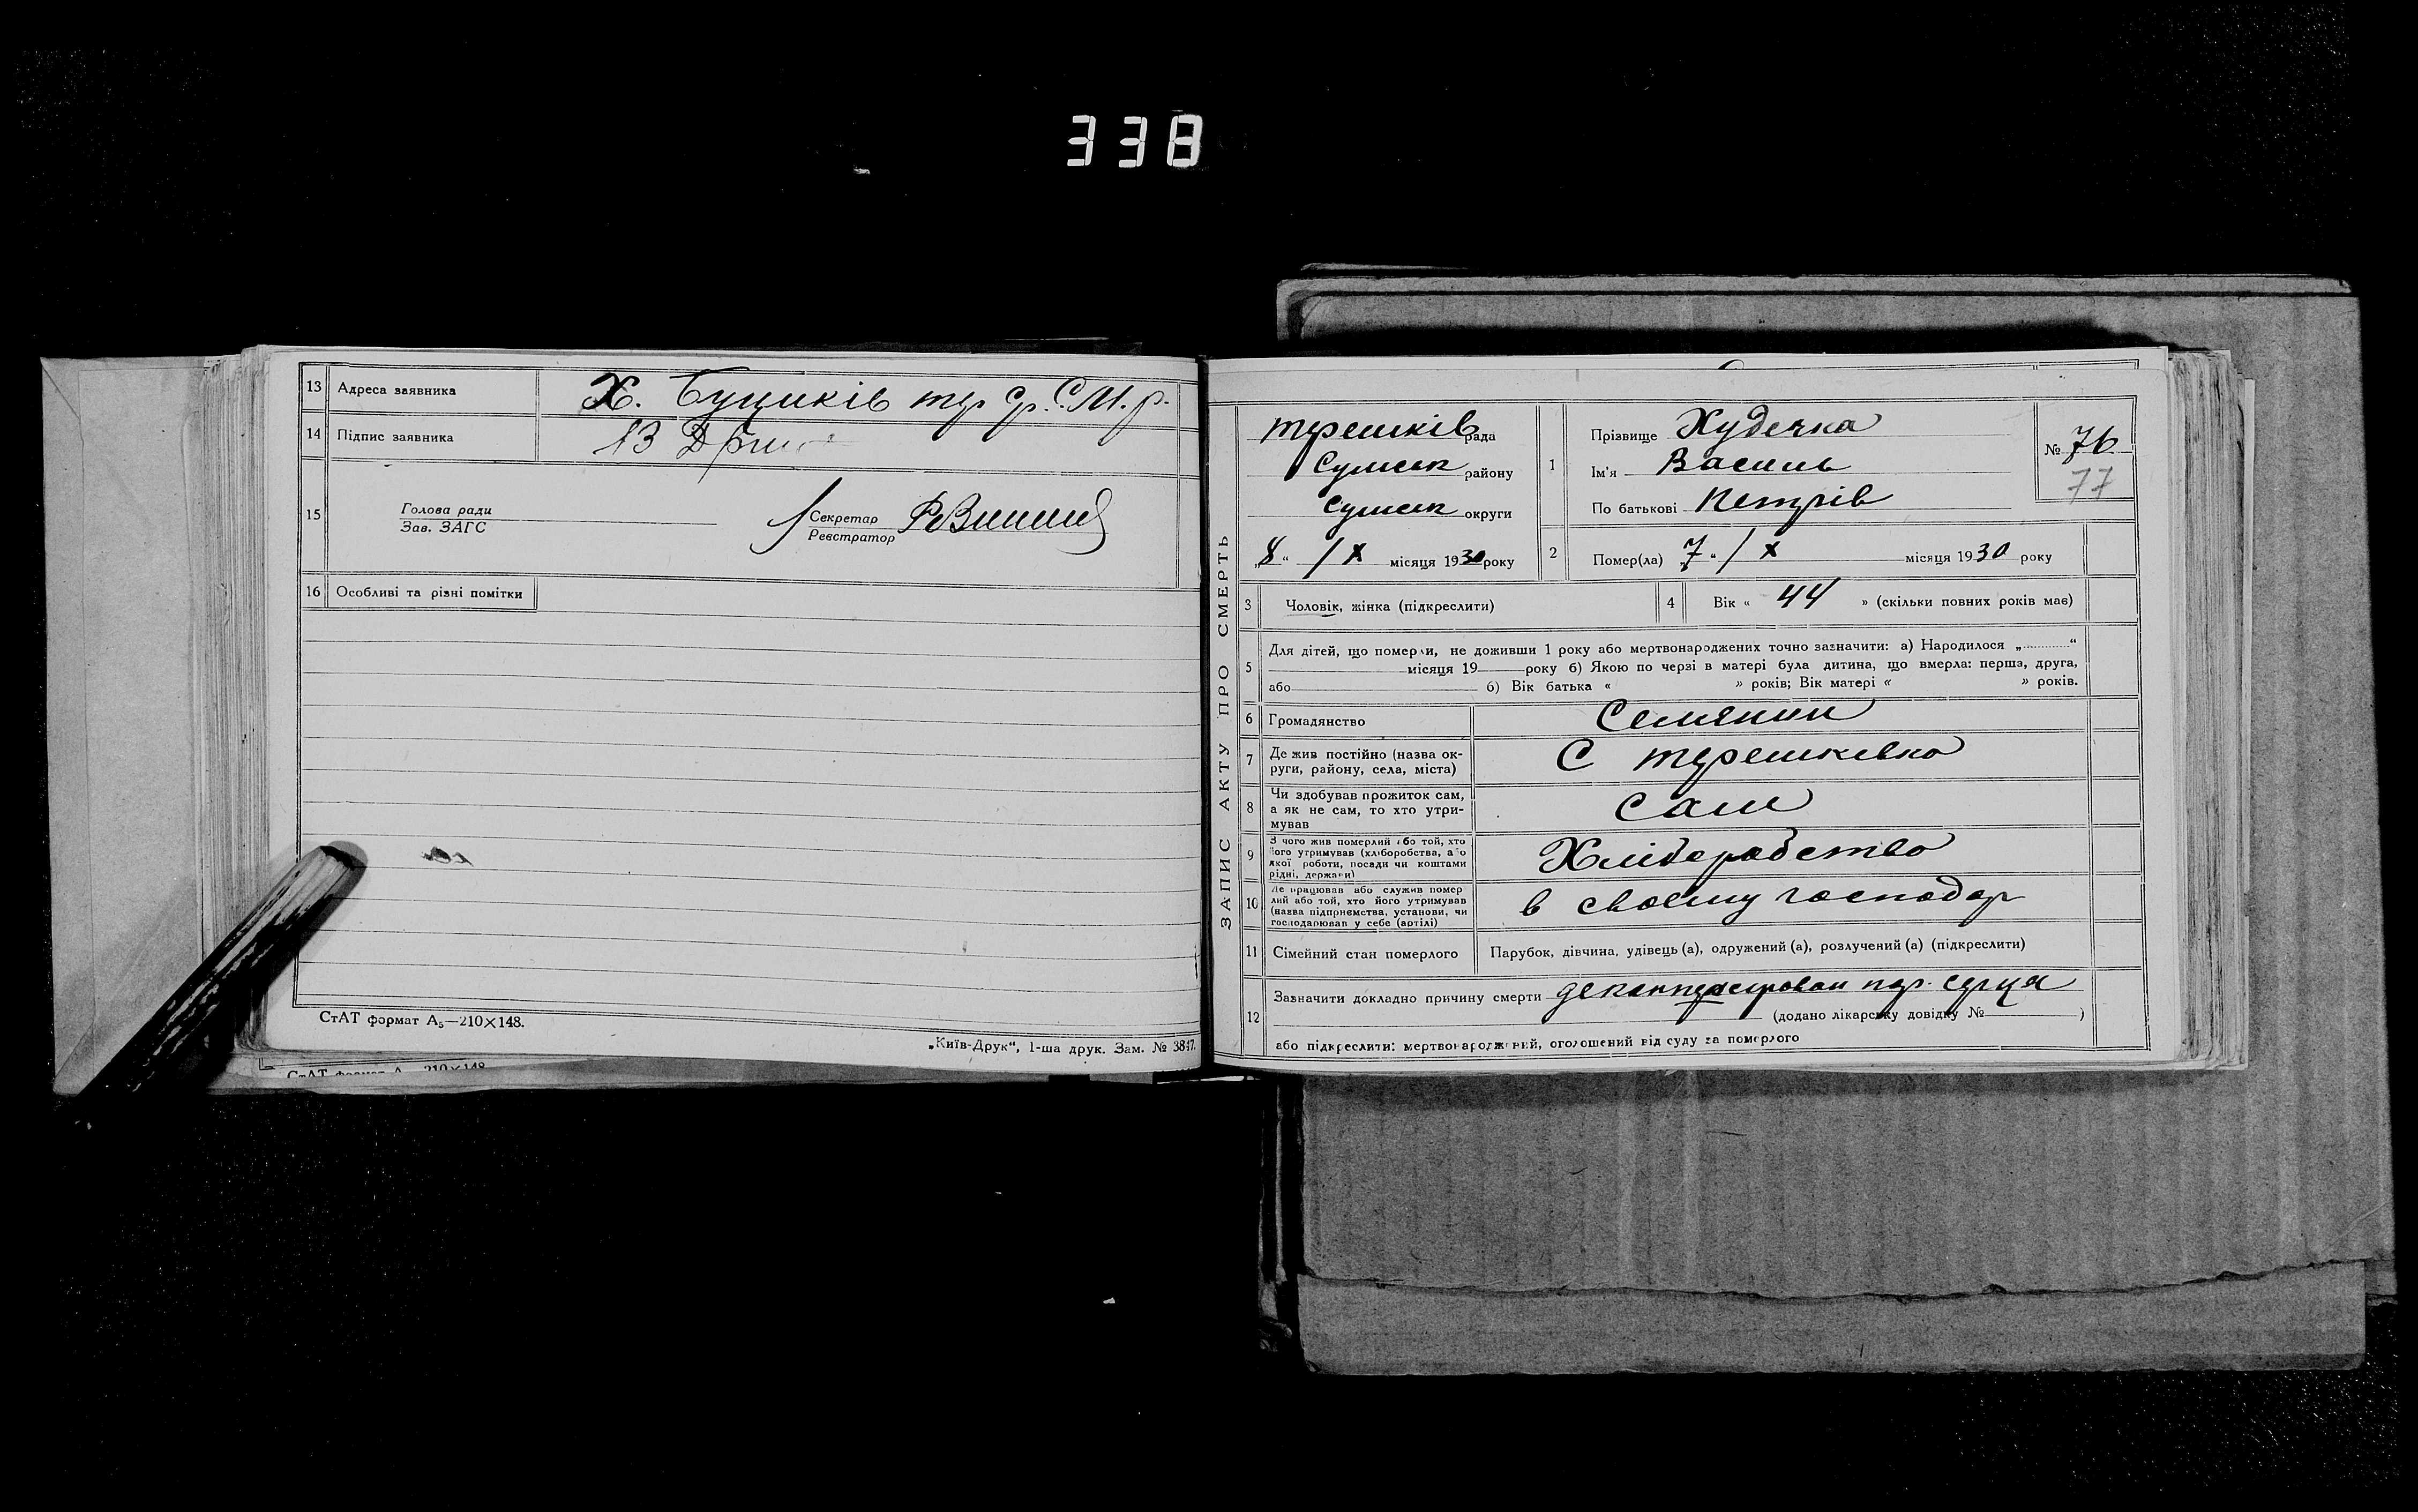 338
13 Адреса заявника Х. Буциків тер ср. С.М.р.
14 Підпис заявника
15 Голова ради
Зав. ЗАГС
Секретар
Реєстратор
16 Особливі та різні помітки
СтАТ формат А₅—210×148.
„Київ-Друк“, 1-ша друк. Зам. № 3847.
СтАТ формат А 210×148
ЗАПИС АКТУ ПРО СМЕРТЬ
терешків рада
Сумськ району
Сумськ округи
„8“ /X місяця 1930 року
1 Прізвище Худечка
Ім'я Василь
По батькові Петрів
№ 76
77
2 Помер(ла) „7“ /X місяця 1930 року
3 Чоловік, жінка (підкреслити)
4 Вік « 44 » (скільки повних років має)
5 Для дітей, що померли, не доживши 1 року або мертвонароджених точно зазначити: а) Народилося „............“
місяця 19 року б) Якою по черзі в матері була дитина, що вмерла: перша, друга,
або б) Вік батька « » років; Вік матері « » років.
6 Громадянство Селянин
7 Де жив постійно (назва ок-
руги, району, села, міста) С терешківка
8 Чи здобував прожиток сам,
а як не сам, то хто утри-
мував Сам
9 З чого жив померлий або той, хто
його утримував (хліборобства, або
якої роботи, посади чи коштами
рідні, держави) Хліборобство
10 Де працював або служив помер
лий або той, хто його утримував
(назва підприємства, установи, чи
господарював у себе (артілі) в своєму господар
11 Сімейний стан померлого Парубок, дівчина, удівець (а), одружений (а), розлучений (а) (підкреслити)
12 Зазначити докладно причину смерти пор. серця
(додано лікарську довідку № )
або підкреслити: мертвонароджений, оголошений від суду за померлого